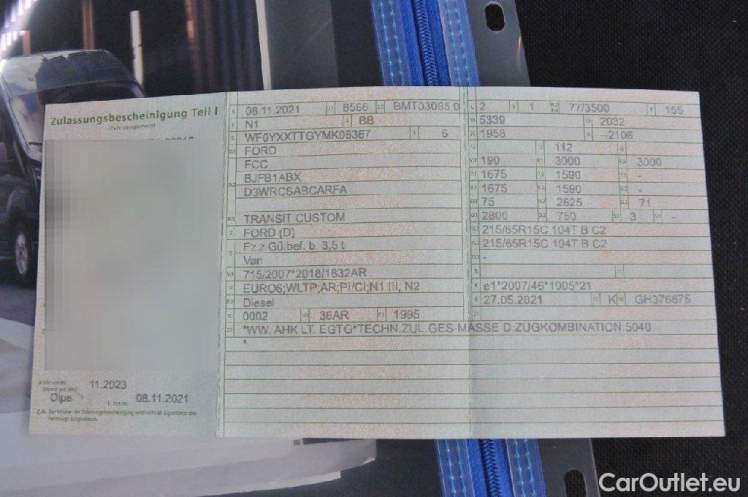 Zulassungsbescheinigung Teil I
08.11.2021 8566 BMT03085 0
N1 BB
WF0YXXTTGYMK08367 6
FORD
FCC
BJFB1ABX
D3WRCSABCARFA
TRANSIT CUSTOM
FORD (D)
Fz.z.Gü.bef. b. 3,5 t
Van
715/2007*2018/1832AR
EURO6;WLTP;AR;PI/CI;N1 III, N2
Diesel
0002 36AR 1995
*WW. AHK LT. EGTG*TECHN.ZUL.GES-MASSE D.ZUGKOMBINATION 5040
*
2 1 77/3500 155
5339 2032
1958 -2106
- 112 -
190 3000 3000
1675 1590 -
1675 1590 -
75 2625 71
2800 750 3 -
215/65R15C 104T B C2
215/65R15C 104T B C2
-
e1*2007/46*1005*21
27.05.2021 K GH376875
11.2023
Olpe 08.11.2021
CarOutlet.eu